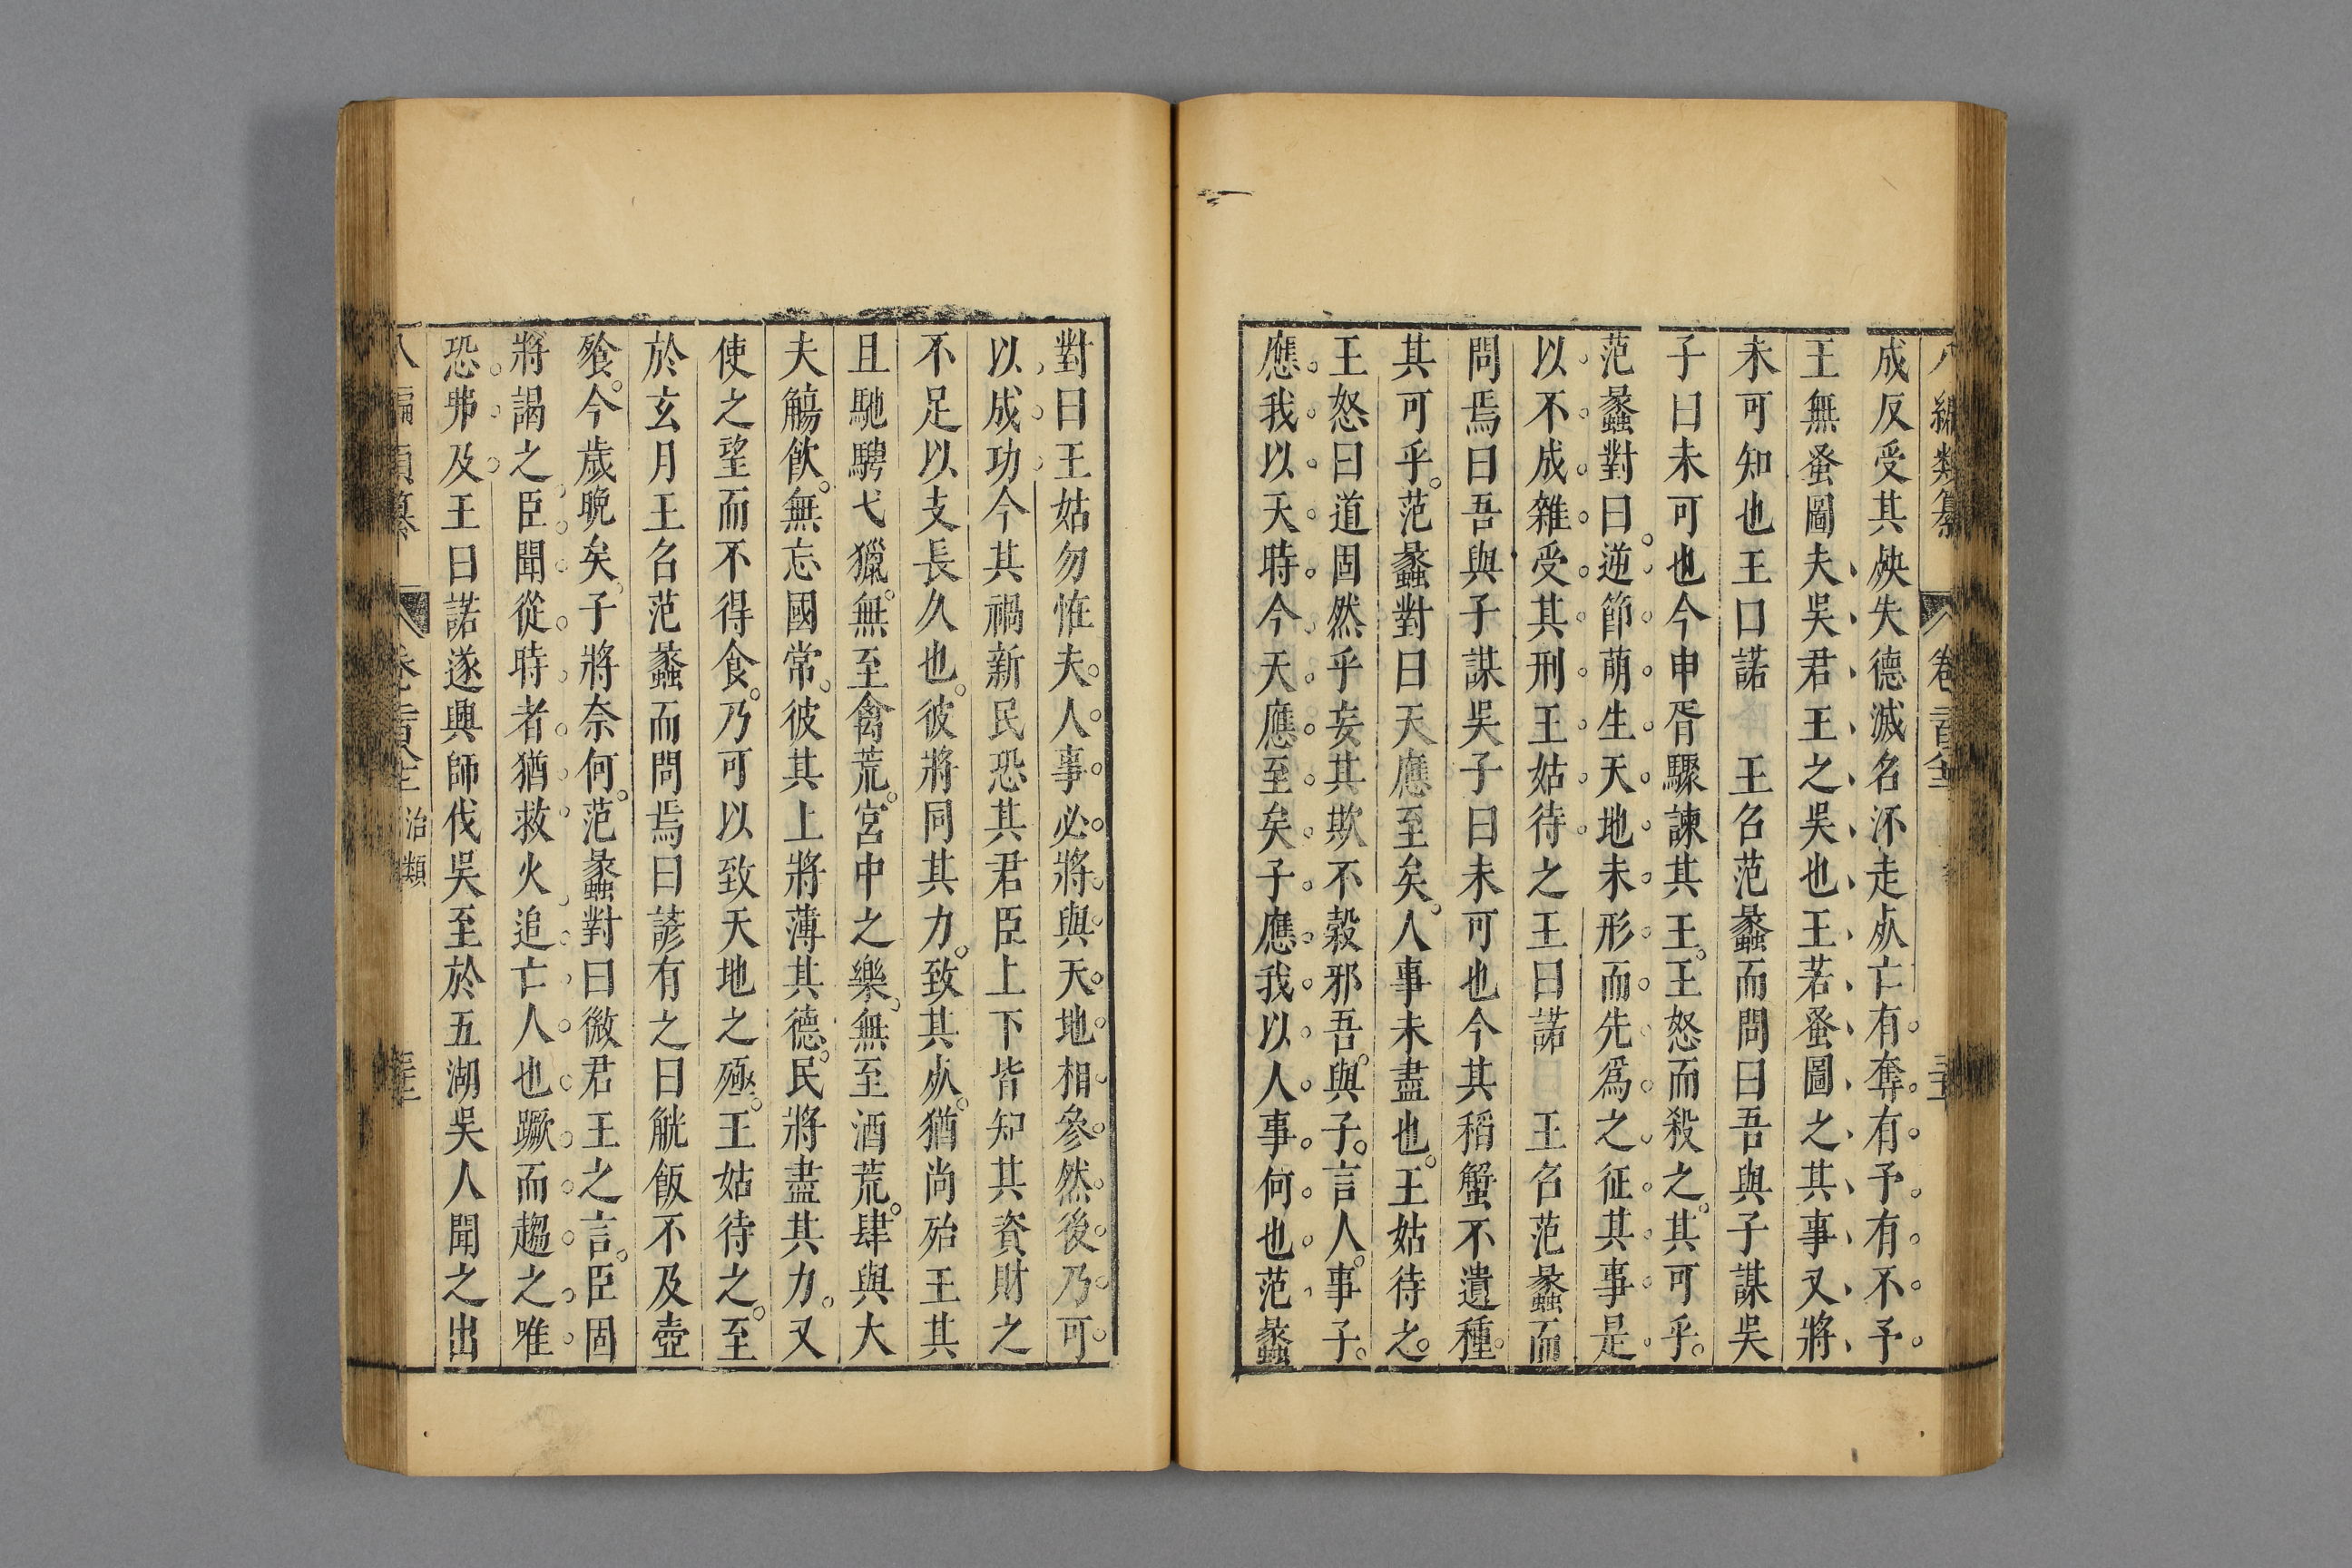 成反受其殃失德滅名流走死亡有奪有予有不予
王無蚤圖夫吳君王之吳也王若蚤圖之其事又將
未可知也王曰諾 王召范蠡而問曰吾與子謀吳
子曰未可也今申胥驟諫其王王怒而殺之其可乎
范蠡對曰逆節萌生天地未形而先爲之征其事是
以不成雜受其刑王姑待之王曰諾 王召范蠡而
問焉曰吾與子謀吳子曰未可也今其稻蟹不遺種
其可乎范蠡對曰天應至矣人事未盡也王姑待之
王怒曰道固然乎妄其欺不穀邪吾與子言人事子
應我以天時今天應至矣子應我以人事何也范蠡
對曰王姑勿恠夫人事必將與天地相參然後乃可
以成功今其禍新民恐其君臣上下皆知其資財之
不足以支長久也彼將同其力致其死猶尚殆王其
且馳騁弋獵無至禽荒宮中之樂無至酒荒肆與大
夫觴飲無忘國常彼其上將薄其德民將盡其力又
使之望而不得食乃可以致天地之殛王姑待之至
於玄月王召范蠡而問焉曰諺有之曰觥飯不及壺
飱今歲晚矣子將奈何范蠡對曰微君王之言臣固
將謁之臣聞從時者猶救火追亡人也蹶而趨之唯
恐弗及王曰諾遂興師伐吳至於五湖吳人聞之出
治類